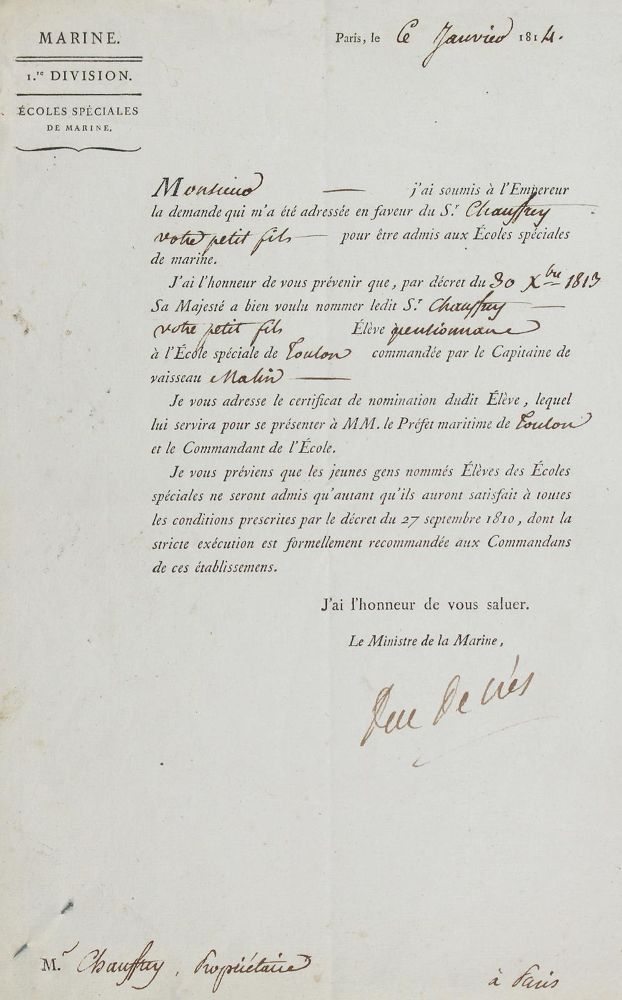 MARINE.
1.re DIVISION.
ÉCOLES SPÉCIALES
DE MARINE.
Paris, le 6 Janvier 1814.
Monsieur — j'ai soumis à l'Empereur
la demande qui m'a été adressée en faveur du S.r
votre petit fils — pour être admis aux Écoles spéciales
de marine.
J'ai l'honneur de vous prévenir que, par décret du 30 Xbre 1813
Sa Majesté a bien voulu nommer ledit S.r
votre petit fils Élève pensionnaire
à l'École spéciale de Toulon commandée par le Capitaine de
vaisseau —
Je vous adresse le certificat de nomination dudit Élève, lequel
lui servira pour se présenter à MM. le Préfet maritime de Toulon
et le Commandant de l'École.
Je vous préviens que les jeunes gens nommés Élèves des Écoles
spéciales ne seront admis qu'autant qu'ils auront satisfait à toutes
les conditions prescrites par le décret du 27 septembre 1810, dont la
stricte exécution est formellement recommandée aux Commandans
de ces établissemens.
J'ai l'honneur de vous saluer.
Le Ministre de la Marine,
Duc Decrès
M.r Propriétaire
à Paris